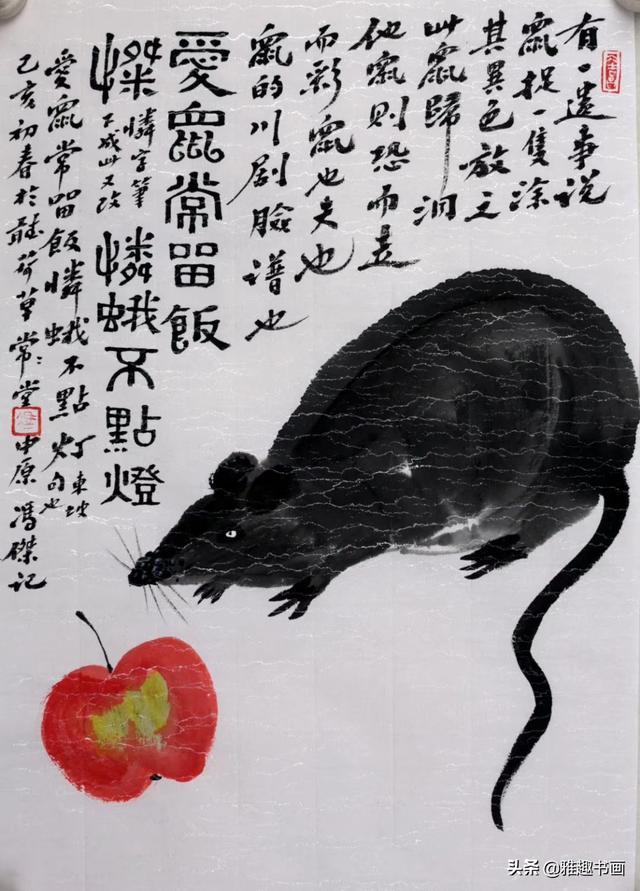 有一遗事说
鼠捉一隻涂
其異色放之
此鼠歸洞
他鼠則恐而走
而彩鼠也夫也
鼠的川剧臉谱也
愛鼠常留飯
憐字筆
下成此又改
憐蛾不點燈
愛鼠常留飯憐蛾不點灯
東坡
句也
己亥初春於聽荷草堂中原馮傑記
头条 @雅趣书画